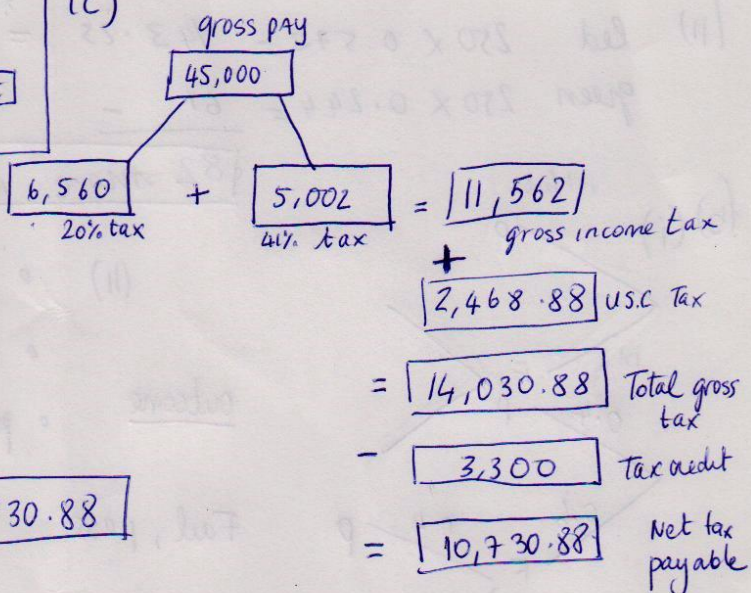 (C)
gross pay
45,000
6,560 + 5,002 = 11,562
20% tax 41% tax gross income tax
+
2,468.88 U.S.C Tax
= 14,030.88 Total gross tax
- 3,300 Tax credit
30.88
= 10,730.88 Net tax payable